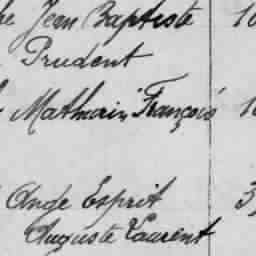 he Jean Baptiste 10
Prudent
Mathurin François 10
Ange Esprit 3
Auguste Laurent